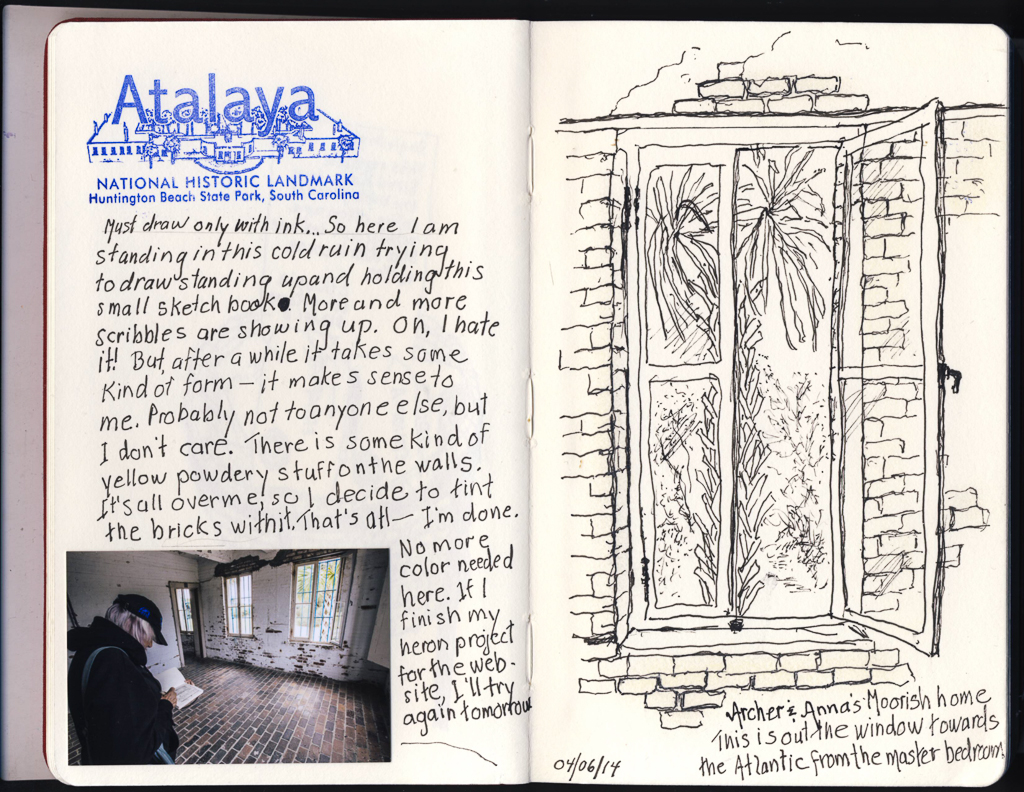 Atalaya
NATIONAL HISTORIC LANDMARK
Huntington Beach State Park, South Carolina
Must draw only with ink... So here I am
standing in this cold rain trying
to draw standing up and holding this
small sketch book. More and more
scribbles are showing up. Oh, I hate
it! But, after a while it takes some
kind of form — it makes sense to
me. Probably not to anyone else, but
I don't care. There is some kind of
yellow powdery stuff on the walls.
It's all over me, so I decide to tint
the bricks with it. That's all — I'm done.
No more
color needed
here. If I
finish my
heron project
for the web-
site, I'll try
again tomorrow
Archer & Anna's Moorish home
This is out the window towards
the Atlantic from the master bedroom.
04/06/14